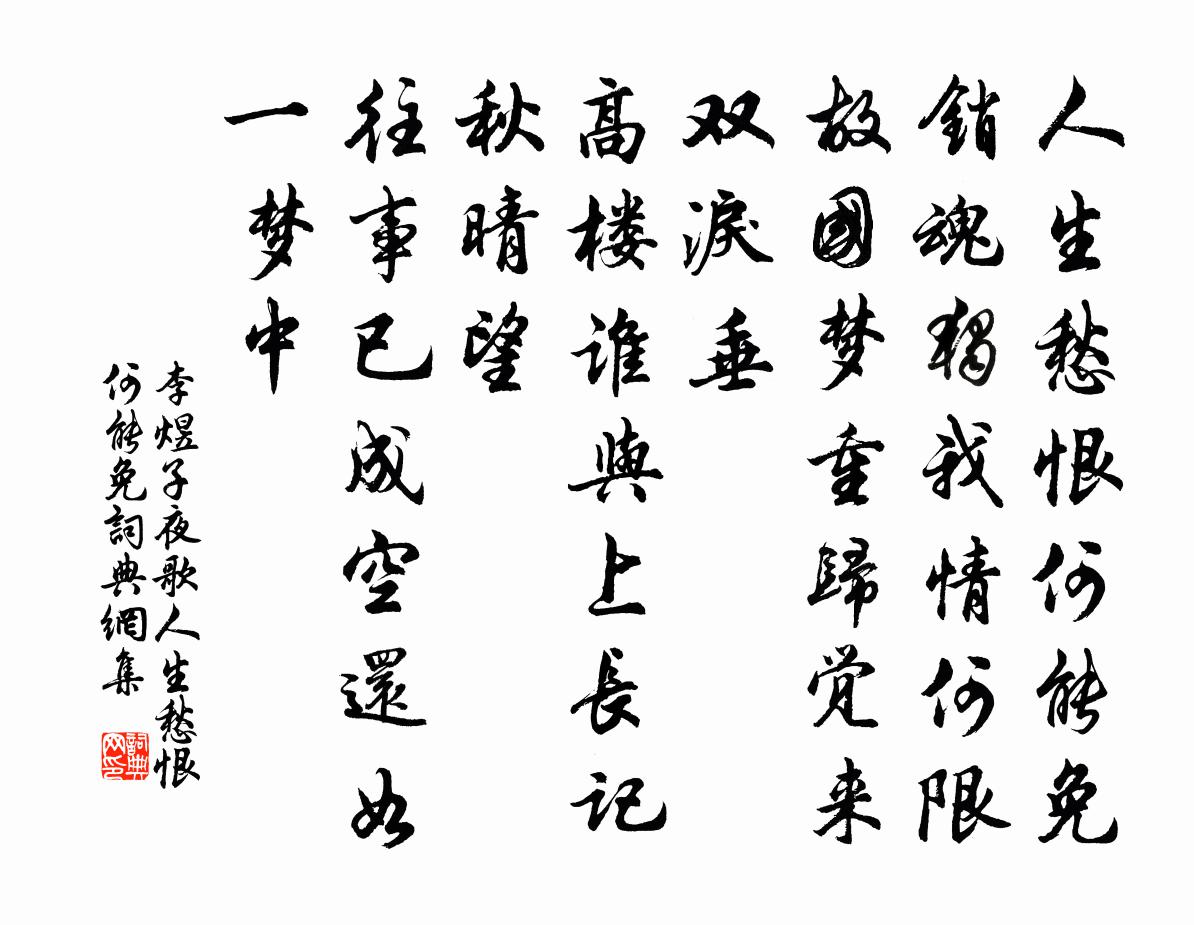 人生愁恨何能免
銷魂獨我情何限
故國梦重歸覚来
双淚垂
高楼誰與上長记
秋晴望
往事已成空還如
一梦中
李煜子夜歌人生愁恨
何能免詞典網集
詞典
网印